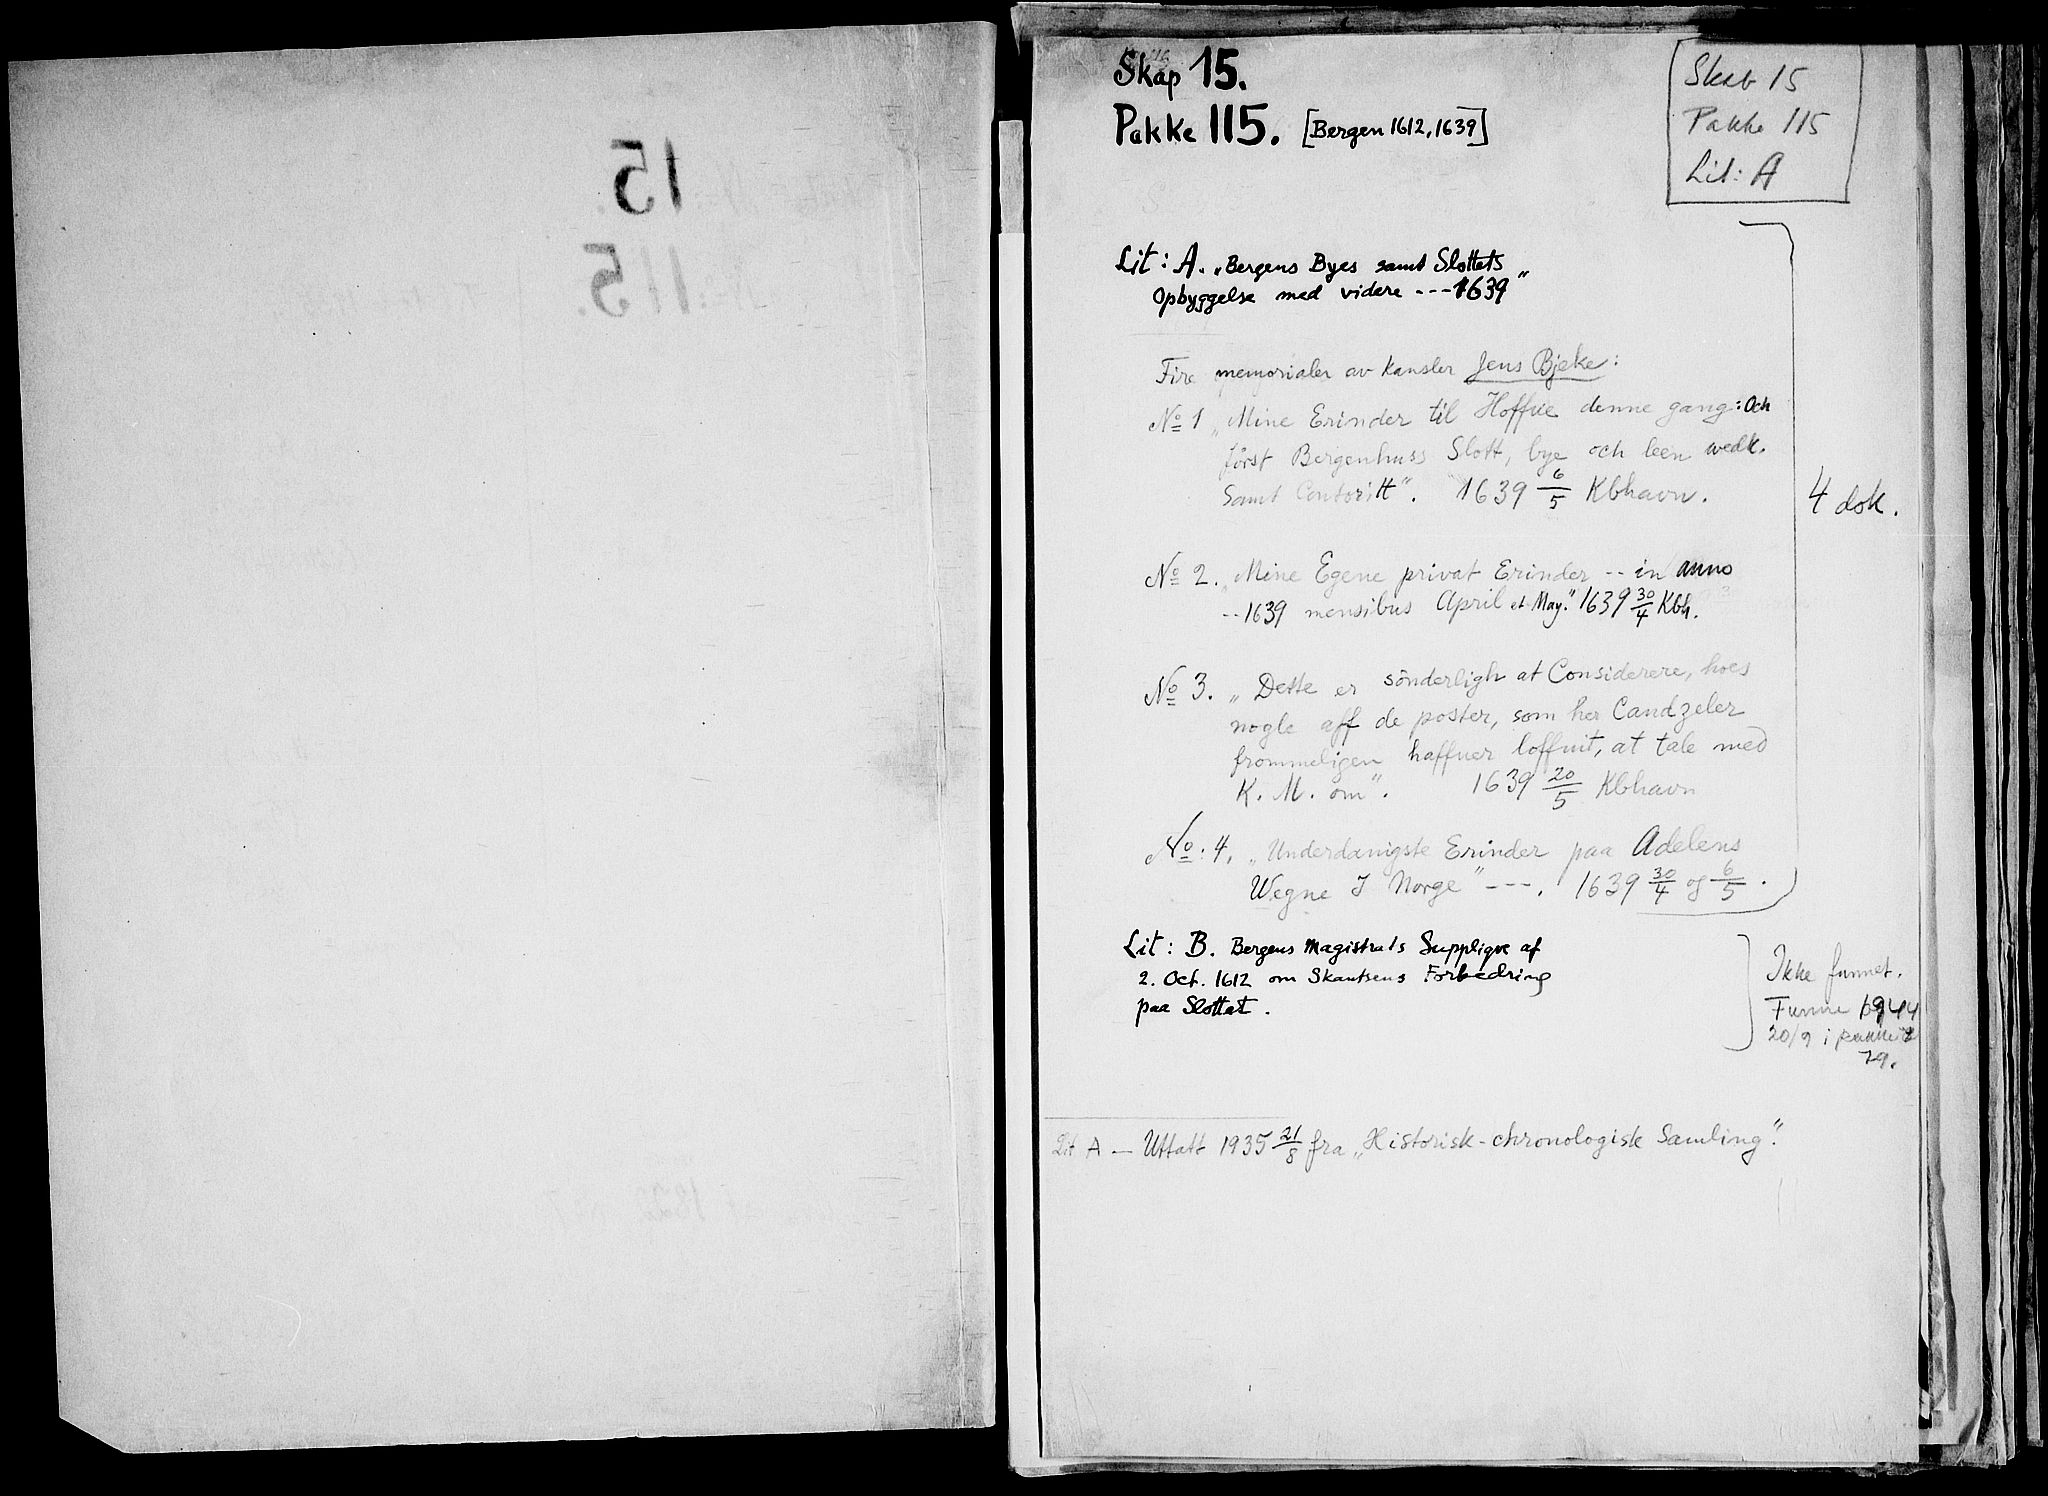 Skap 15.
Pakke 115. [Bergen 1612, 1639]
Skab 15
Pakke 115
Lit: A
Lit: A. „Bergens Byes samt Slottets
Opbyggelse med videre --- 1639"
Fire memorialer av kansler Jens Bjelke:
No 1 „Mine Erinder til Hoffue denne gang: Och
först Bergenhuss Slott, bye och leen wedk.
Samt Contoritt". 1639 6/5 Kbhavn.
4 dok.
No 2. „Mine Egene privat Erinder -- in anno
-- 1639 mensibus April et May." 1639 30/4 Kbh.
No 3. „Dette er sönderligh at Considerere, hoes
nogle aff de poster, som her Candzeler
frommeligen haffuer loffuit, at tale med
K. M. om". 1639 20/5 Kbhavn
No: 4. „Underdanigste Erinder paa Adelens
Wegne I Norge" ---. 1639 30/4 og 6/5.
Lit: B. Bergens Magistrats Supplique af
2. Oct. 1612 om Skantsens Forbedring
paa Slottet.
Ikke funnet.
1944
20/9 i pakke
79.
Lit A — Uttatt 1935 21/8 fra „Historisk-chronologisk Samling".
15.
No: 115.